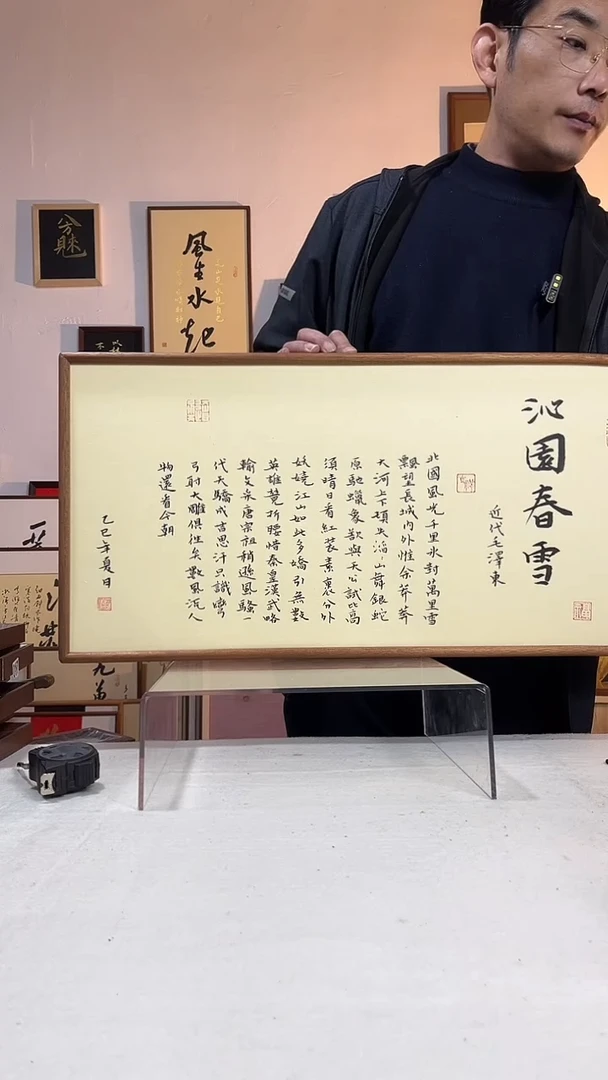 沁園春雪
近代毛澤東
北國風光千里氷封萬里雪
飄望長城內外惟余莽莽
大河上下頓失滔〻山舞銀蛇
原馳蠟象欲與天公試比高
須晴日看紅裝素裹分外
妖嬈江山如此多嬌引無數
英雄競折腰惜秦皇漢武略
輸文采唐宗祖稍遜風騷一
代天驕成吉思汗只識彎
弓射大雕俱往矣數風流人
物還看今朝
乙巳年夏日
風生水起